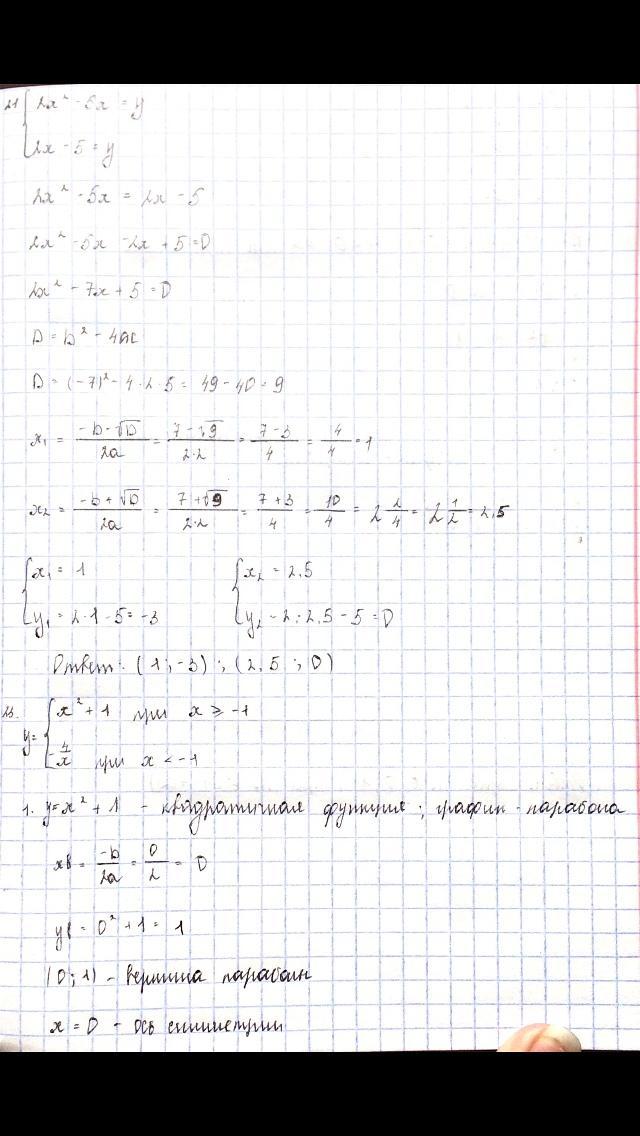 21 { 2x² - 5x = y
2x - 5 = y
2x² - 5x = 2x - 5
2x² - 5x - 2x + 5 = 0
2x² - 7x + 5 = 0
D = b² - 4ac
D = (-7)² - 4·2·5 = 49 - 40 = 9
x₁ = (-b-√D)/2a = (7-√9)/2·2 = (7-3)/4 = 4/4 = 1
x₂ = (-b+√D)/2a = (7+√9)/2·2 = (7+3)/4 = 10/4 = 2 2/4 = 2 1/2 = 2,5
{ x₁ = 1 { x₂ = 2,5
y₁ = 2·1 - 5 = -3 y₂ = 2·2,5 - 5 = 0
Ответ: (1; -3) ; (2,5 ; 0)
23. y = { x² + 1 при x ≥ -1
-4/x при x < -1
1. y = x² + 1 - квадратичная функция; график - парабола
xв = -b/2a = 0/2 = 0
yв = 0² + 1 = 1
(0; 1) - вершина параболы
x = 0 - ось симметрии